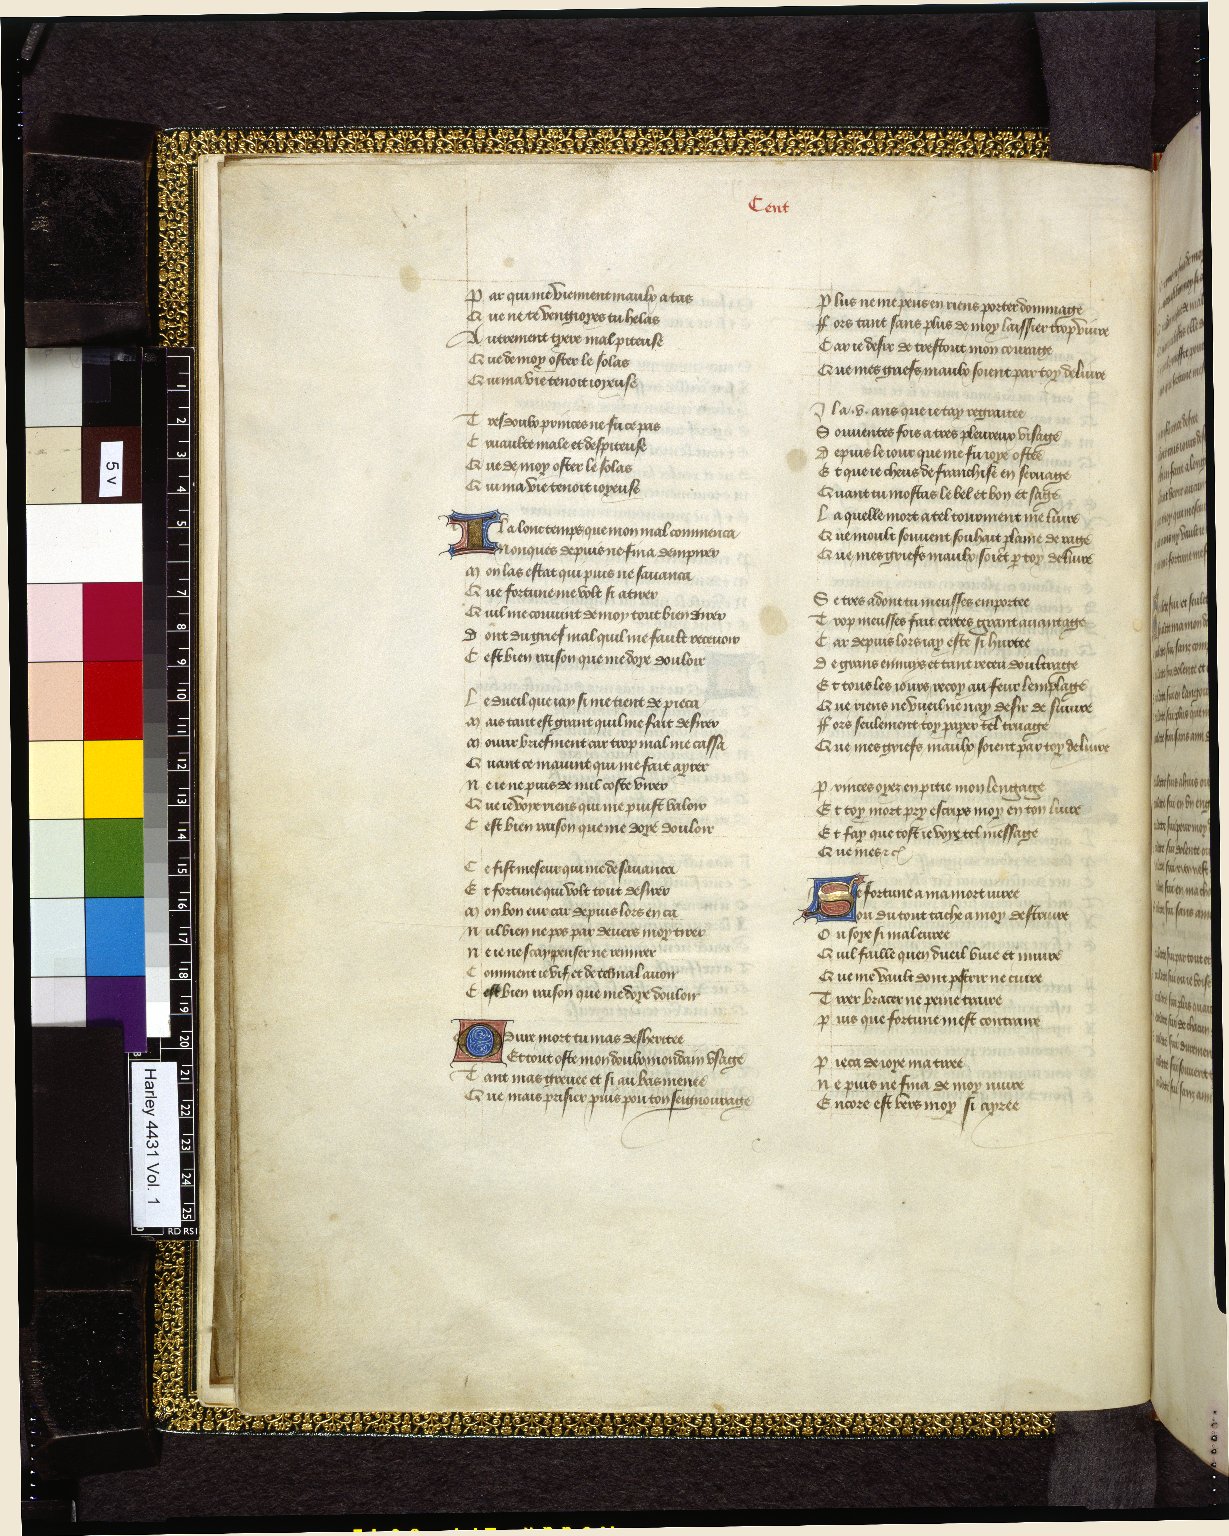 Cent
Par qui me viennent maulx a tas
Que ne te vengioyes tu helas
Autrement trere mal piteuse
Que de moy oster le solas
Qui ma vie tenoit ioyeuse
Tresdoulx princes ne fu ce pas
Cruaulte male et despiteuse
Que de moy oster le solas
Qui ma vie tenoit ioyeuse
Il a lonc temps que mon mal commenca
Nonques depuis ne fina dempirer
Mon las estat qui puis ne sauanca
Que fortune me volt si atirer
Quil me couuint de moy tout bien tirer
Dont du grief mal quil me fault receuoir
Cest bien raison que me doye douloir
Le dueil que iay si me tient de pieca
Mais tant est grant quil me fait desirer
Mourir briefment car trop mal me cassa
Quant ce mauint qui me fait ayrer
Ne ie ne puis de nul coste virer
Que ie voye riens qui me puist valoir
Cest bien raison que me doye douloir
Ce fist meseur qui me desauanca
Et fortune qui volt tout desirer
Mon bon eur car depuis lors en ca
Nul bien ne pos par deuers moy tirer
Ne ie ne scay penser ne remirer
Comment ie vif et de tel mal auoir
Cest bien raison que me doye douloir
O dure mort tu mas desheritee
Et tout oste mon doulx mondain vsage
Tant mas greuee et si au bas menee
Que mais prisier puis pou ton seignourage
Plus ne me peus en riens porter dommage
Ffors tant sans plus de moy laissier trop viure
Car ie desir de trestout mon courage
Que mes griefs maulx soient par toy deliure
Il a .v. ans que ie tay regraitee
Souuentes fois a tres pleureux visage
Depuis le iour que me fu ioye ostee
Et que ie cheus de franchise en seruage
Quant tu mostas le bel et bon et sage
Laquelle mort a tel tourment me liure
Que moult souuent souhait plaine de rage
Que mes griefs maulx soiẽt p toy deliure
Se tres adont tu meusses emportee
Trop meusses fait certes grant auantage
Car depuis lors iay este si hurtee
De grans ennuys et tant receu doultrage
Et tous les iours recoy au feur lemplage
Que riens ne vueil ne nay desir de suiure
Ffors seulement toy payer tel truage
Que mes griefs maulx soient par toy deliure
Princes oyez en pitie mon lengage
Et toy mort pry escrips moy en ton liure
Et fay que tost ie voye tel message
Que mes &c
Se fortune a ma mort iuree
Ou du tout tache a moy destruire
Ou soye si maleuree
Quil faille quen dueil viue et muire
Que me vault dont pestrir ne cuire
Tirer bracer ne peine traire
Puis que fortune mest contraire
Pieca de ioye ma tiree
Ne puis ne fina de moy nuire
Encore est vers moy si ayree
5 v
Harley 4431 Vol. 1